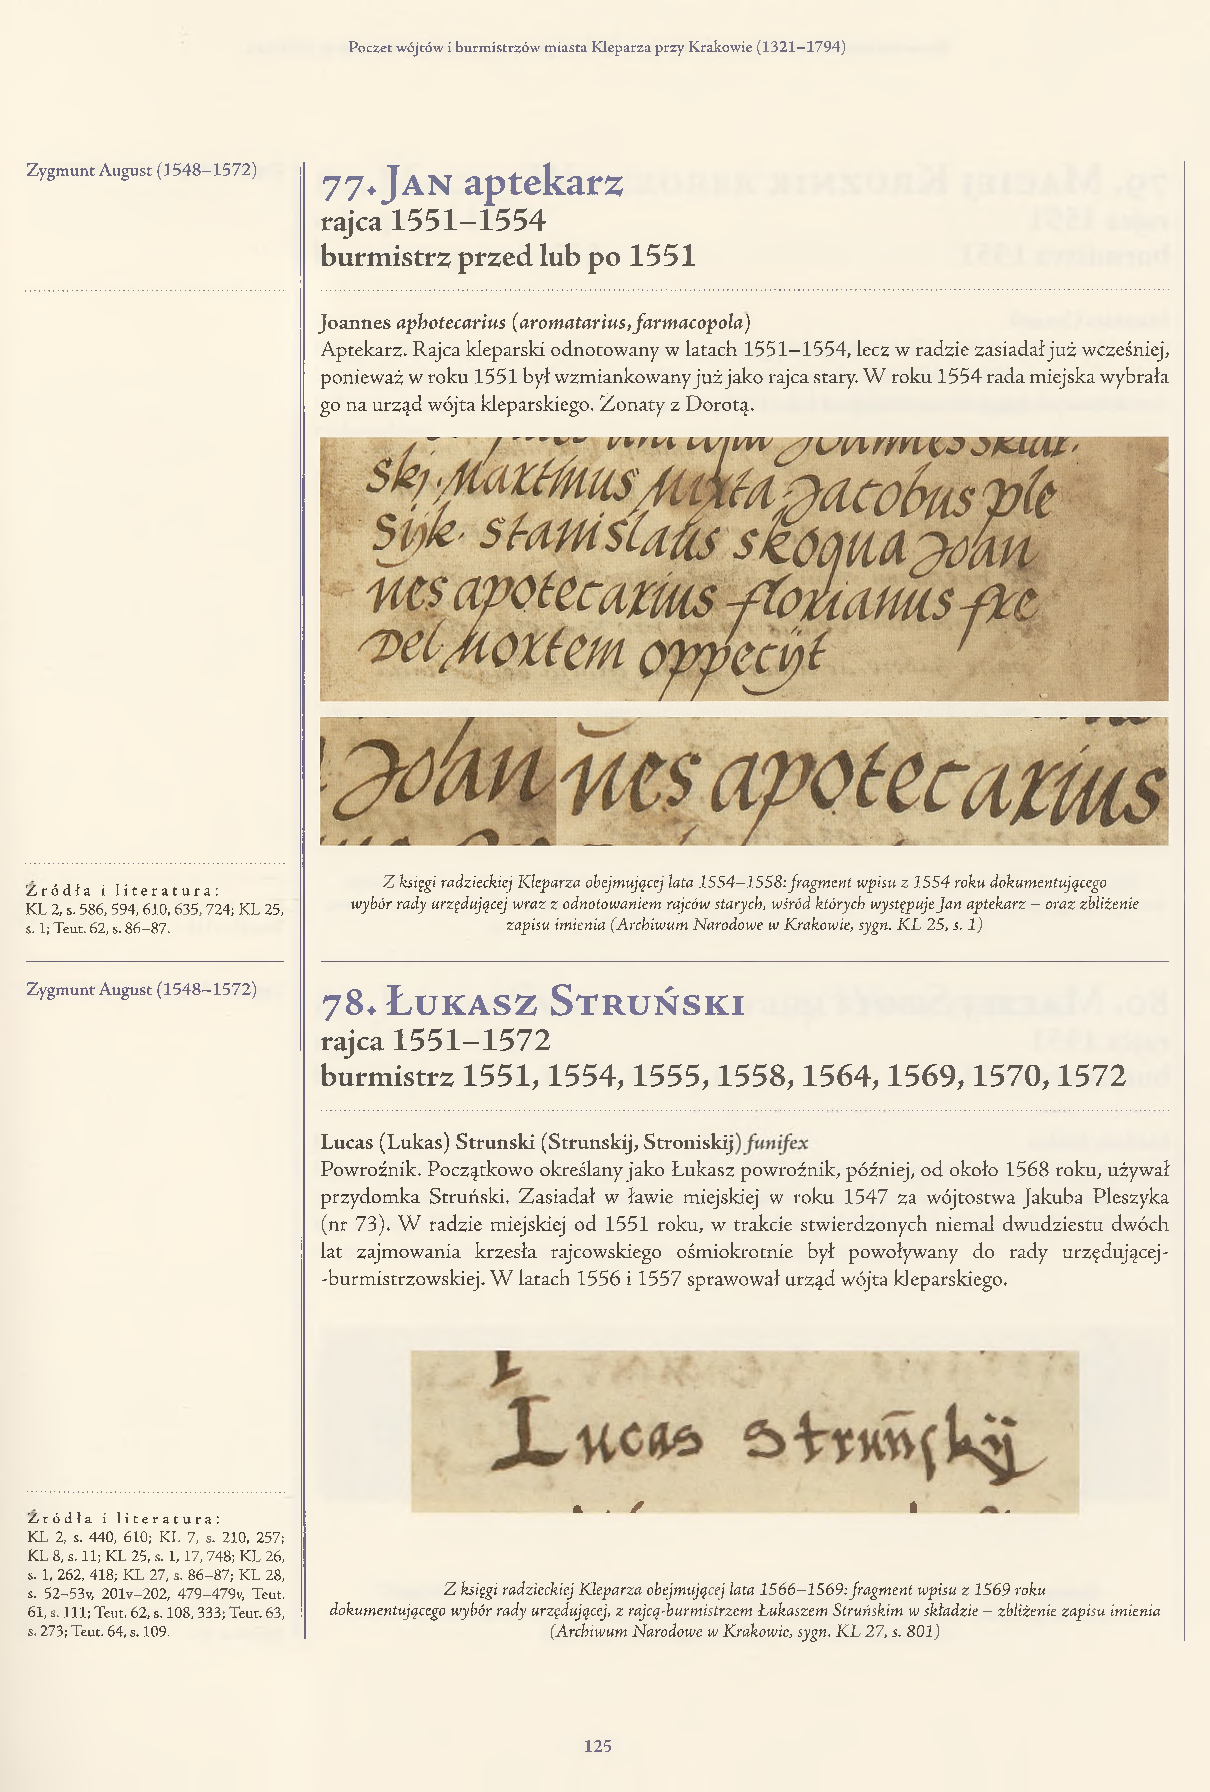 Poczet wójtów i burmistrzów miasta Kleparza przy Krakowie (1321–1794)
Zygmunt August (1548–1572)
77. Jan aptekarz
rajca 1551–1554
burmistrz przed lub po 1551
Joannes aphotecarius (aromatarius, farmacopola)
Aptekarz. Rajca kleparski odnotowany w latach 1551–1554, lecz w radzie zasiadał już wcześniej,
ponieważ w roku 1551 był wzmiankowany już jako rajca stary. W roku 1554 rada miejska wybrała
go na urząd wójta kleparskiego. Żonaty z Dorotą.
ski. Martinus Muxta Jacobus ple
sijk. stanislaus skoqua Joan
nes apotecarius florianus fre
del mortem oppecijt
Joannes apotecarius
Źródła i literatura:
KL 2, s. 586, 594, 610, 635, 724; KL 25,
s. 1; Teut. 62, s. 86–87.
Z księgi radzieckiej Kleparza obejmującej lata 1554–1558: fragment wpisu z 1554 roku dokumentującego
wybór rady urzędującej wraz z odnotowaniem rajców starych, wśród których występuje Jan aptekarz – oraz zbliżenie
zapisu imienia (Archiwum Narodowe w Krakowie, sygn. KL 25, s. 1)
Zygmunt August (1548–1572)
78. Łukasz Struński
rajca 1551–1572
burmistrz 1551, 1554, 1555, 1558, 1564, 1569, 1570, 1572
Lucas (Lukas) Strunski (Strunskij, Stroniskij) funifex
Powroźnik. Początkowo określany jako Łukasz powroźnik, później, od około 1568 roku, używał
przydomka Struński. Zasiadał w ławie miejskiej w roku 1547 za wójtostwa Jakuba Pleszyka
(nr 73). W radzie miejskiej od 1551 roku, w trakcie stwierdzonych niemal dwudziestu dwóch
lat zajmowania krzesła rajcowskiego ośmiokrotnie był powoływany do rady urzędującej-
-burmistrzowskiej. W latach 1556 i 1557 sprawował urząd wójta kleparskiego.
Lucas Strunskij
Źródła i literatura:
KL 2, s. 440, 610; KL 7, s. 210, 257;
KL 8, s. 11; KL 25, s. 1, 17, 748; KL 26,
s. 1, 262, 418; KL 27, s. 86–87; KL 28,
s. 52–53v, 201v–202, 479–479v, Teut.
61, s. 111; Teut. 62, s. 108, 333; Teut. 63,
s. 273; Teut. 64, s. 109.
Z księgi radzieckiej Kleparza obejmującej lata 1566–1569: fragment wpisu z 1569 roku
dokumentującego wybór rady urzędującej, z rajcą-burmistrzem Łukaszem Struńskim w składzie – zbliżenie zapisu imienia
(Archiwum Narodowe w Krakowie, sygn. KL 27, s. 801)
125